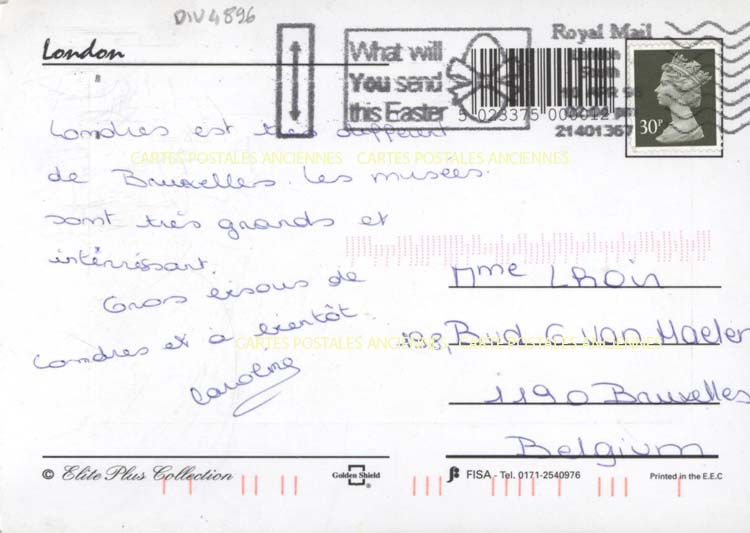 DIV4896
London
What will
You send
this Easter
Royal Mail
South
5 023375 000012
21401367
30P
Londres est très different
de Bruxelles. Les musées
sont très grands et
intérréssant.
Gros bisous de
Londres et à bientôt.
Caroline
CARTES POSTALES ANCIENNES CARTES POSTALES ANCIENNES
Mme
198, Bvd G. Van Haelen
1190 Bruxelles
Belgium
CARTES POSTALES ANCIENNES CARTES POSTALES ANCIENNES
© Elite Plus Collection
Golden Shield ®
FISA - Tel. 0171-2540976
Printed in the E.E.C